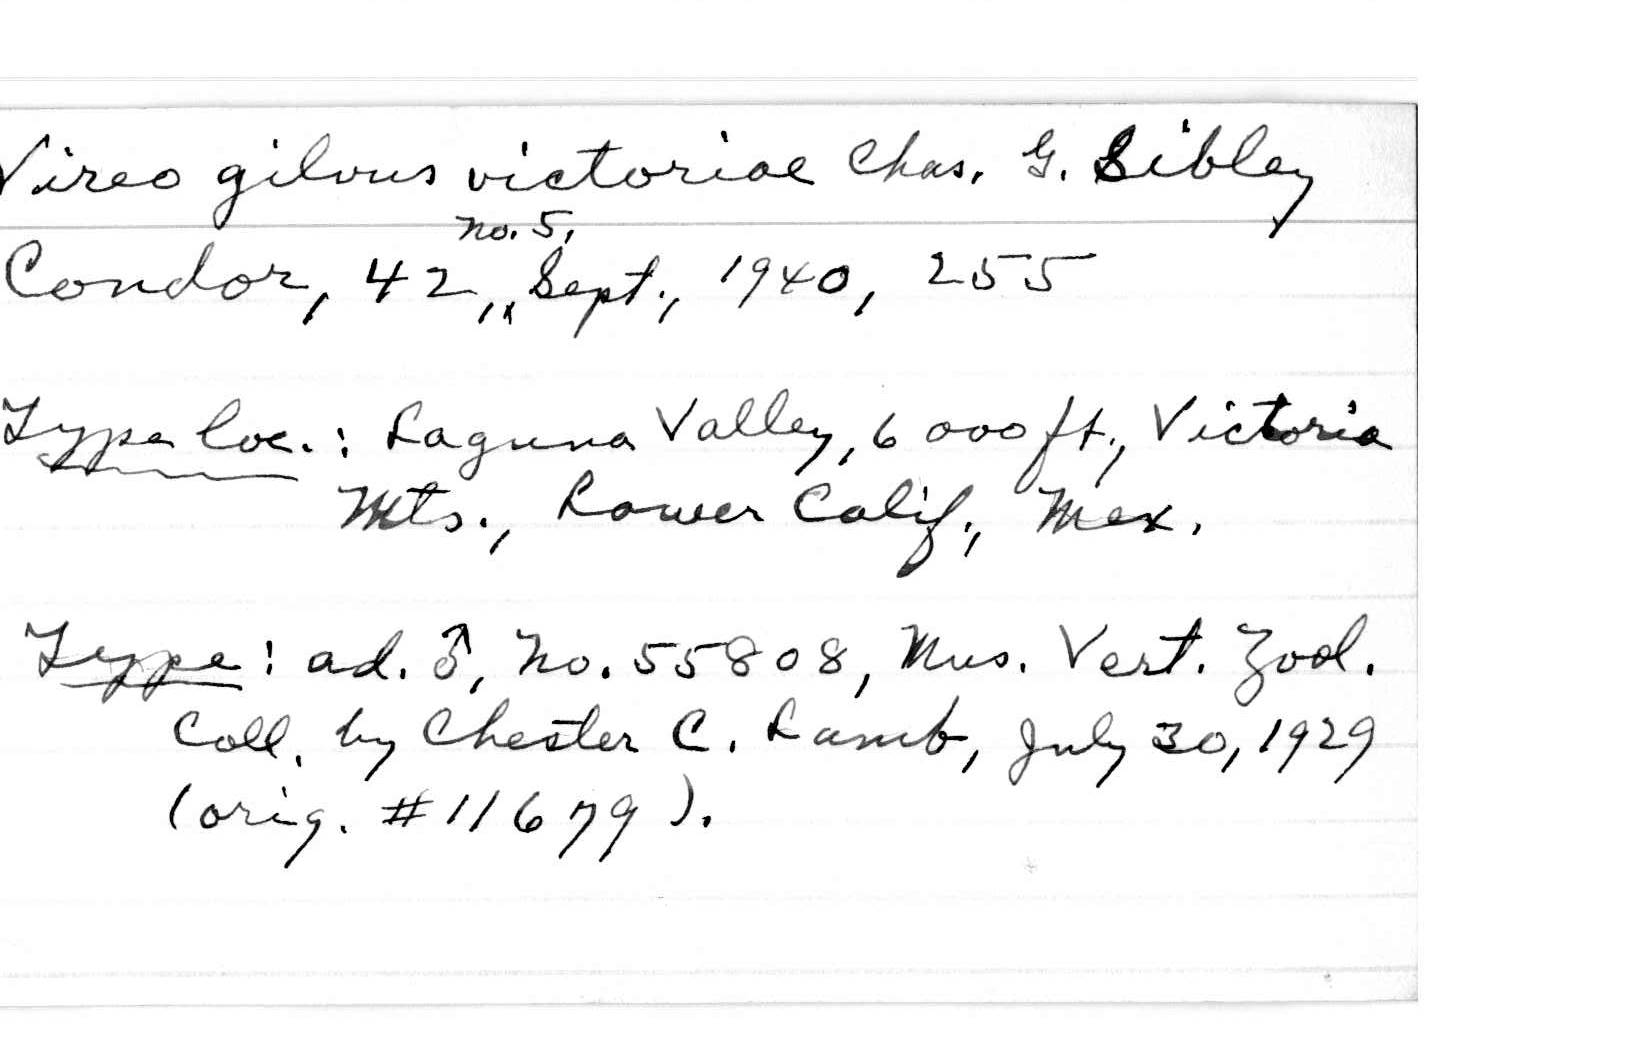 Vireo gilvus victoriae Chas. G. Sibley
no. 5,
Condor, 42, Sept., 1940, 255
Type loc.: Laguna Valley, 6000 ft., Victoria
Mts., Lower Calif., Mex.
Type: ad. ♂, No. 55808, Mus. Vert. Zool.
Coll. by Chester C. Lamb, July 30, 1929
(orig. #11679).